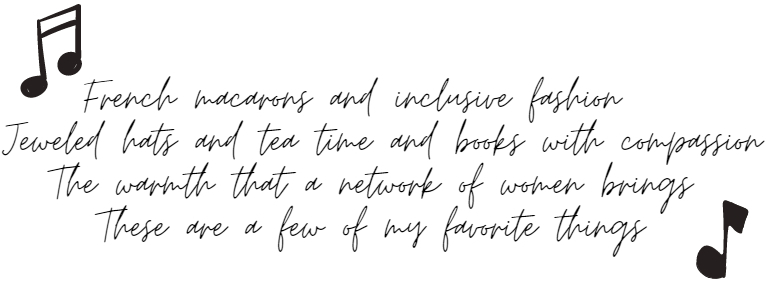 French macarons and inclusive fashion
Jeweled hats and tea time and books with compassion
The warmth that a network of women brings
These are a few of my favorite things